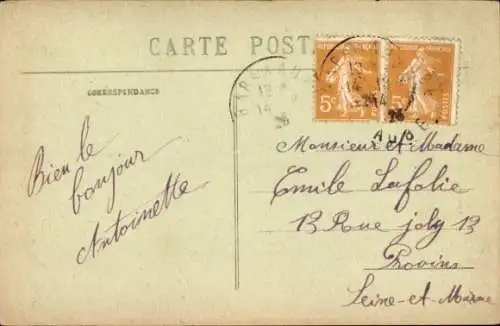 CARTE POSTA
CORRESPONDANCE
5c
5c
POSTES
12
14
26
AUBE
Bien le
bonjour
Antoinette
Monsieur et Madame
Emile Lafolie
13 Rue joly 13
Provins
Seine-et-Marne